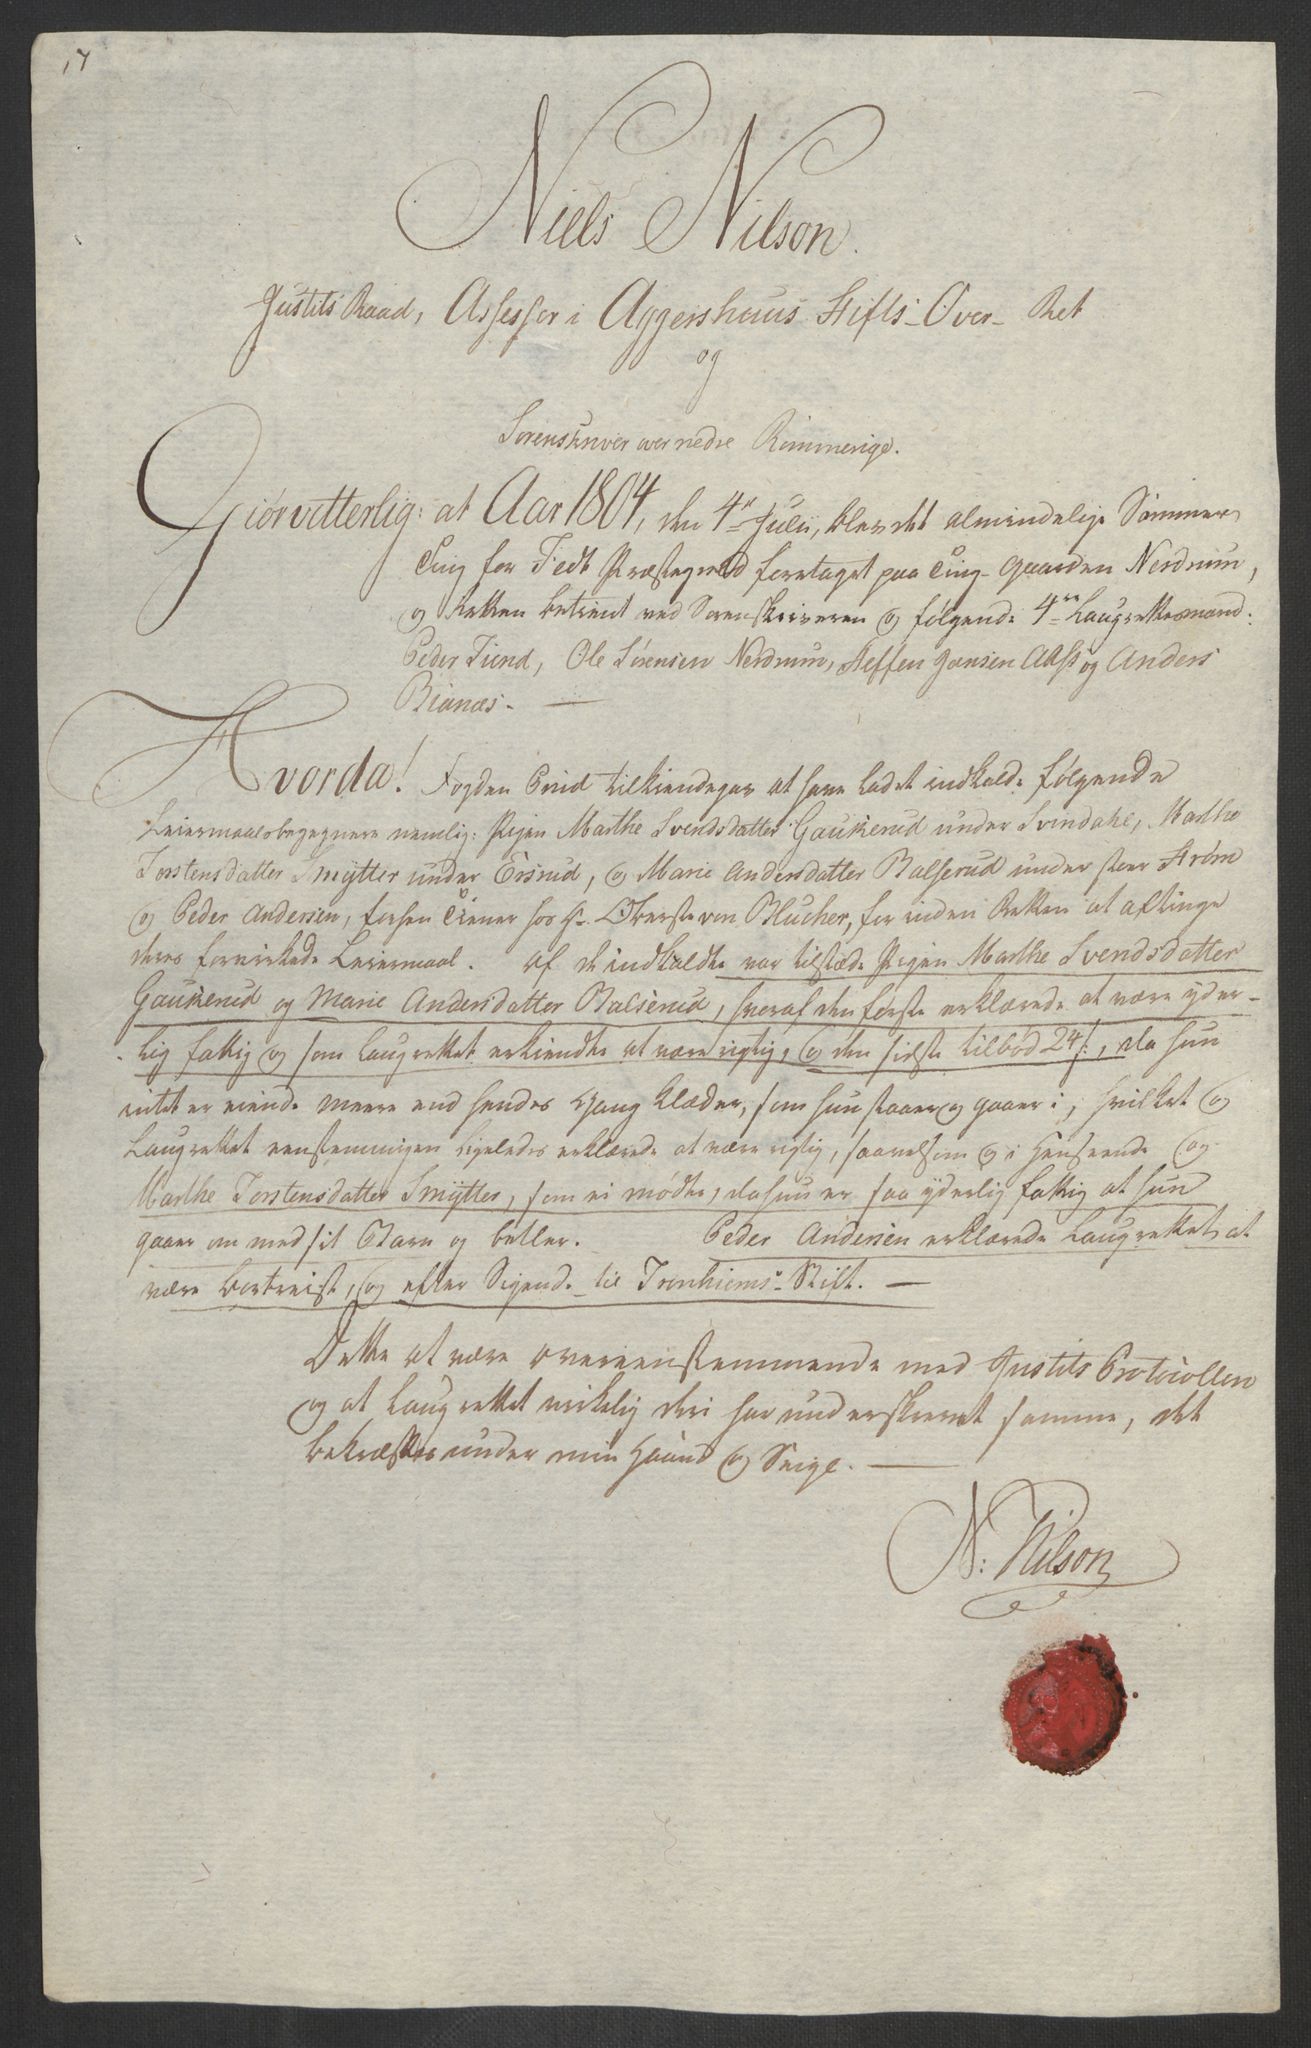 17
Niels Nilson.
Justits Raad, Assessor i Aggershuus Stifts-Over-Ret
og
Sorenskriver over nedre Rommerige.
Giør vitterlig: at Aar 1804, den 4de Julii, blev det almindelige Sommer
Ting for Fedt Præstegield foretaget paa Ting-Gaarden Nerdrum,
og Retten betient ved Sorenskriveren og følgende 4re Laugrettesmænd:
Peder Fiend, Ole Sørensen Nerdrum, Steffen Jonsen Aass og Anders
Bianæs. —
Hvorda! Fogden tilkiendegav at have ladet indkalde følgende
Leiermaalsbegengere nemlig: Pigen Marthe Svendsdatter Gaukerud under Svindahl, Marthe
Torstensdatter Smytter under Ersrud, og Marie Andersdatter Balserud under stoer Strøm
og Peder Andersen, forhen Tiener hos Hr. Oberste von Blucher, for inden Retten at aftinge
deres forvirkede Leiermaal. Af de indkaldte var tilstæde Pigen Marthe Svendsdatter
Gaukerud og Marie Andersdatter Balserud, hvoraf den første erklærede at være yder-
-lig fattig og som Laugrettet erkiendte at være rigtig, og den sidste tilbød 24 s:, da hun
intet er eiende meere end hendes Gang Klæder, som hun staaer og gaaer i, hvilket og
Laugrettet eenstemmigen ligeledes erklærede at være rigtig, saavelsom og i Henseende og
Marthe Torstensdatter Smytter, som ei mødte, da hun er saa yderlig fattig at hun
gaaer om med sit Barn og betler. Peder Andersen erklærede Laugrettet at
være bortreist, og efter Sigende til Tronhiems-Stift. —
Dette at være overeenstemmende med Justits Protocollen
og at Laugrettet virkelig deri har underskrevet samme, det
bekræftes under min Haand og Seigl. —
N: Nilson